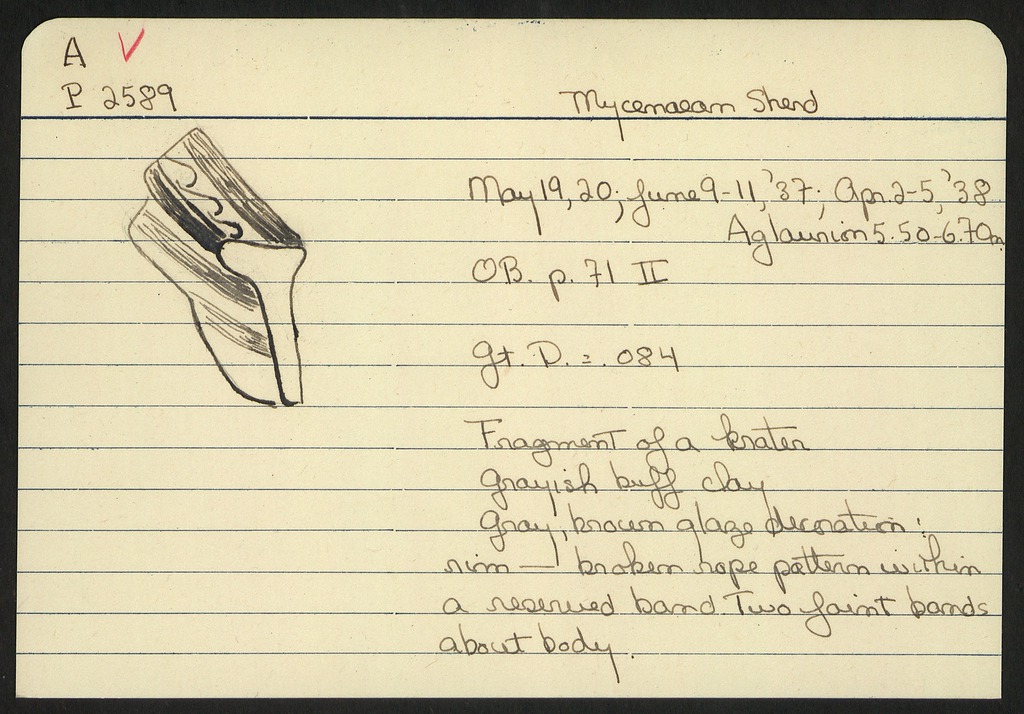 A ✓
P 2589
Mycenaean Sherd
May 19, 20; June 9-11, '37; Apr. 2-5, '38
Aglaurion 5.50-6.70m
OB. p. 71 II
Gt. D. = .084
Fragment of a krater
Grayish buff clay
Gray, brown glaze decoration:
rim — broken rope pattern within
a reserved band. Two faint bands
about body.